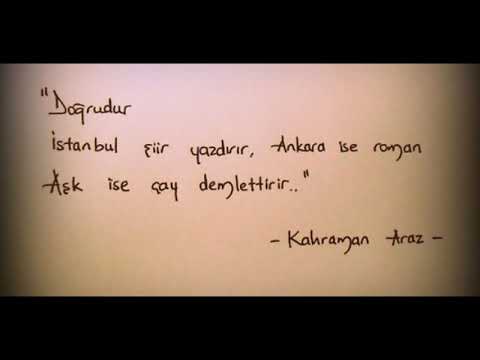 "Doğrudur
İstanbul şiir yazdırır, Ankara ise roman
Aşk ise çay demlettirir.."
- Kahraman Araz -